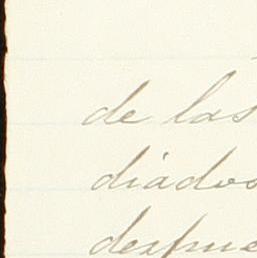 de las
diados
despue